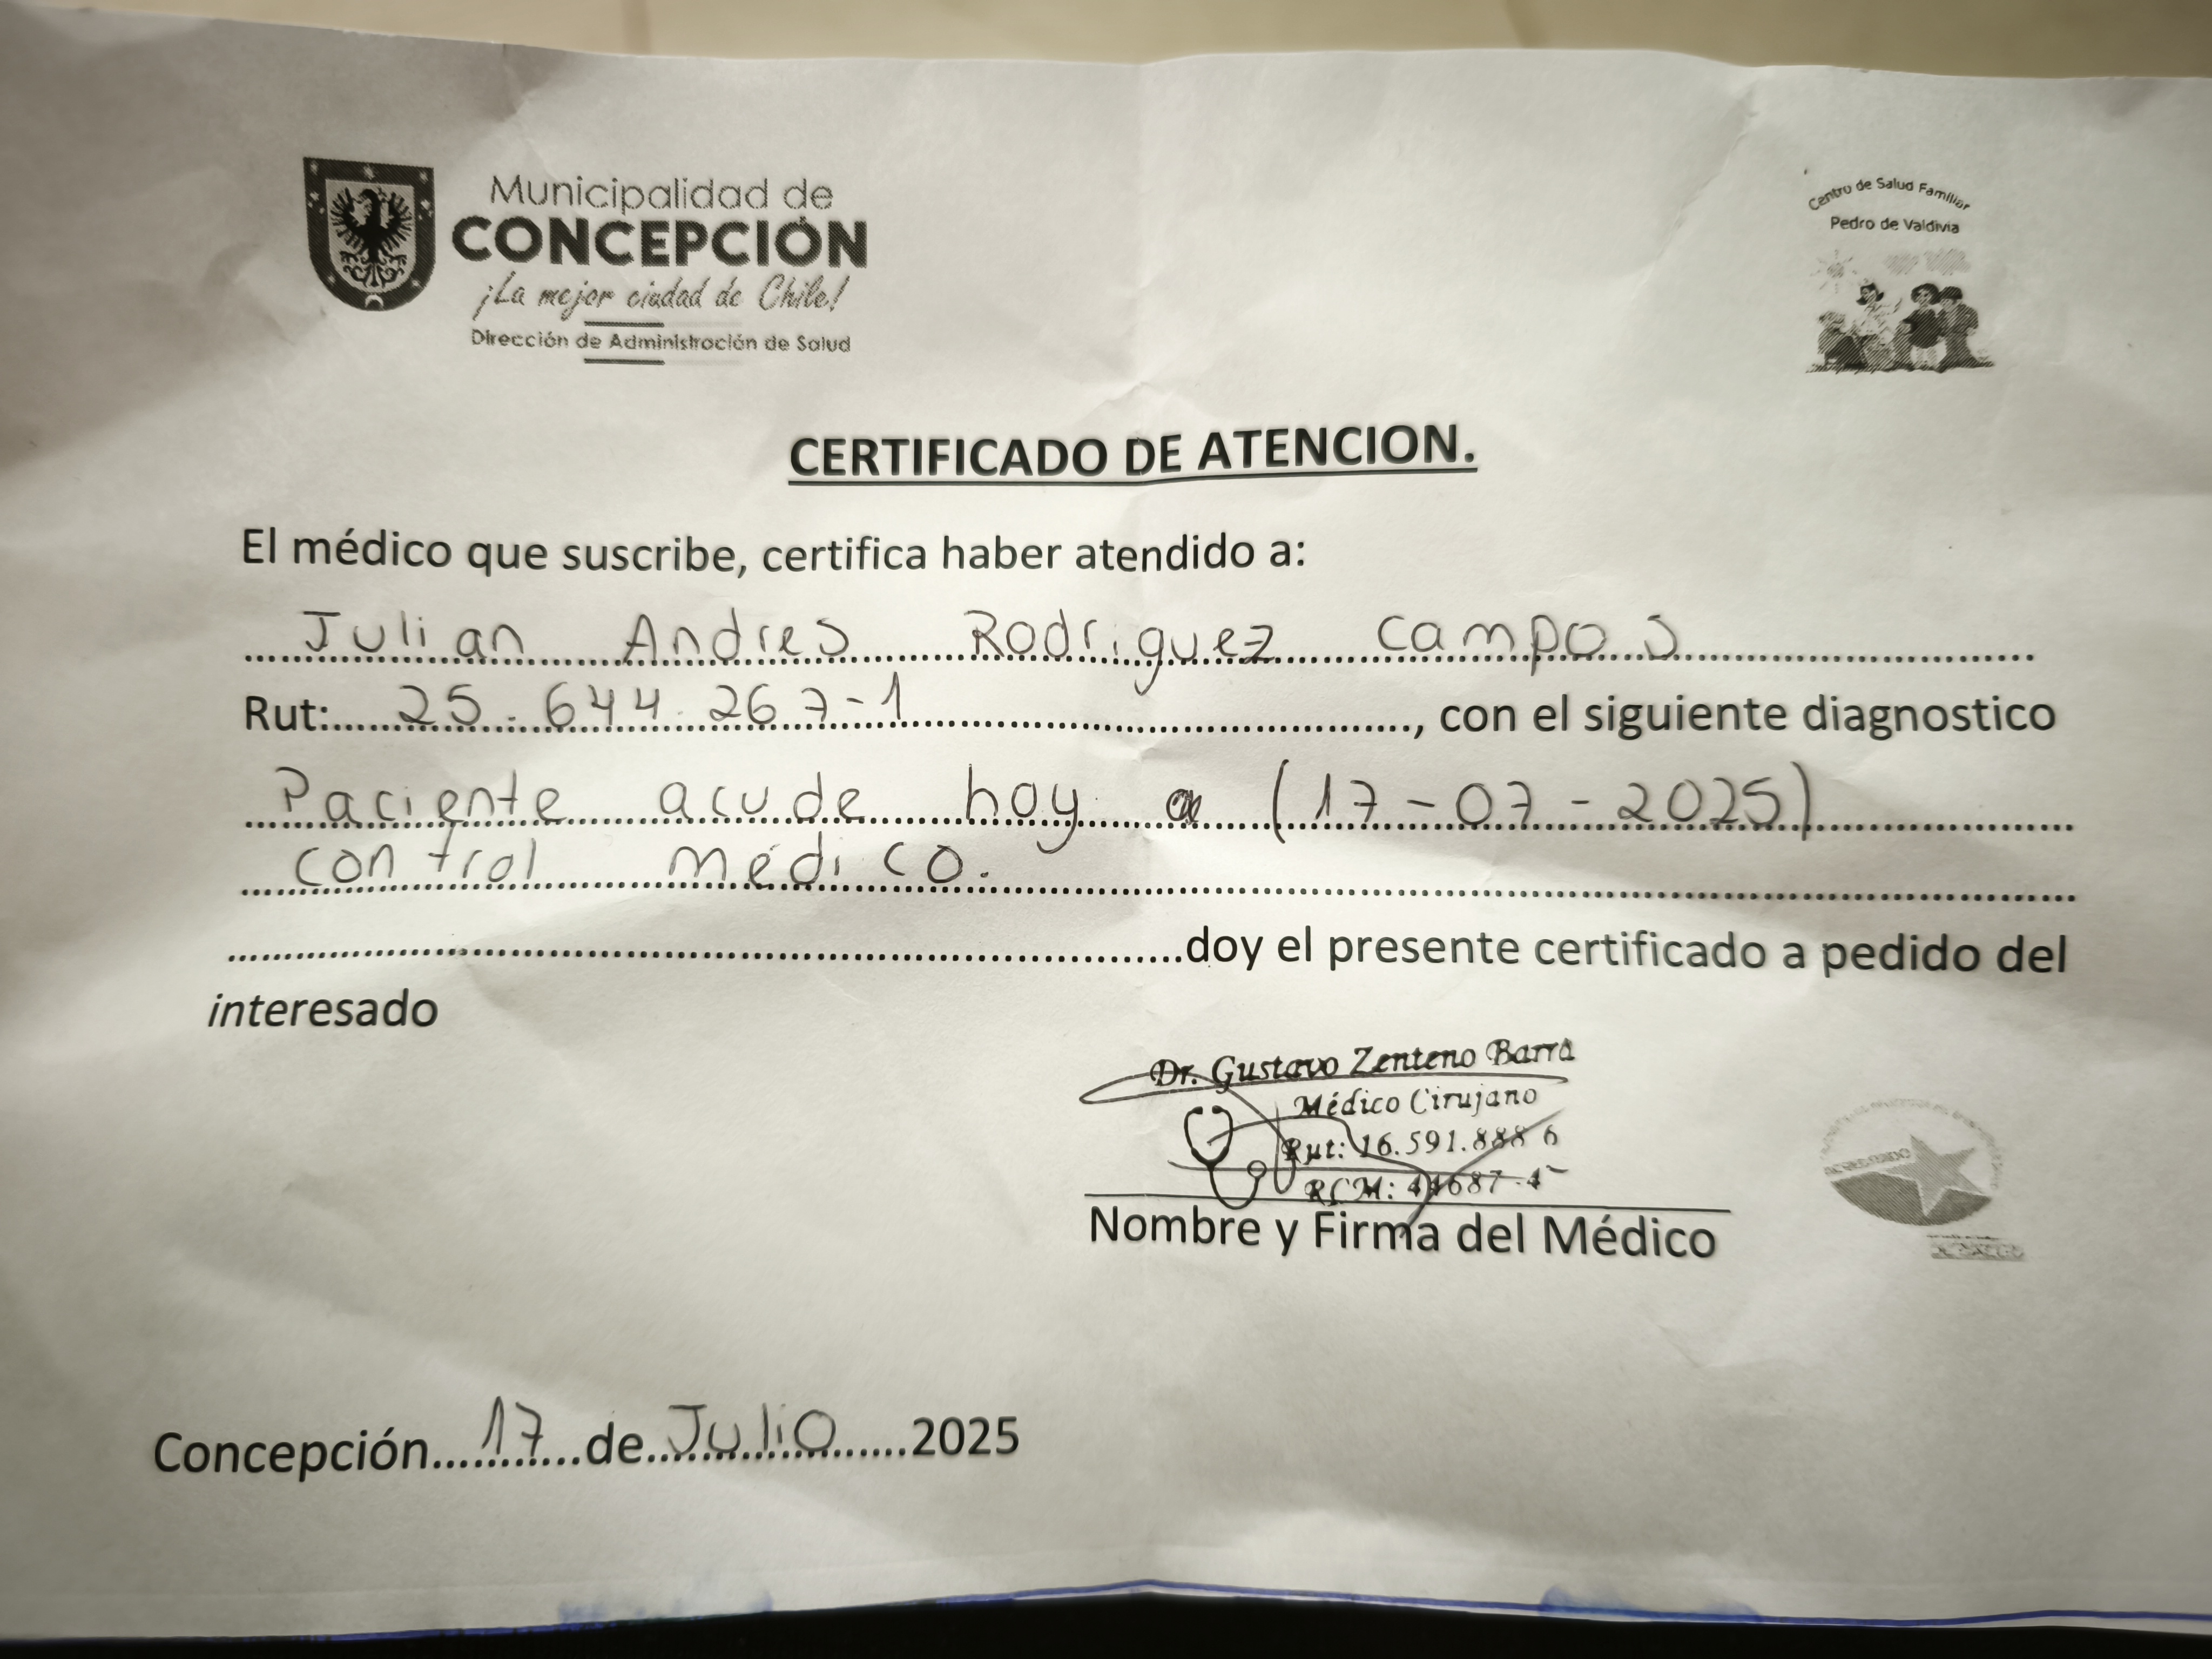 Municipalidad de
CONCEPCIÓN
¡La mejor ciudad de Chile!
Dirección de Administración de Salud
Centro de Salud Familiar
Pedro de Valdivia
CERTIFICADO DE ATENCION.
El médico que suscribe, certifica haber atendido a:
Julian Andres Rodriguez Campos
Rut: 25.644.267-1, con el siguiente diagnostico
Paciente acude hoy a (17-07-2025)
control médico.
doy el presente certificado a pedido del
interesado
Dr. Gustavo Zenteno Barra
Médico Cirujano
Rut: 16.591.888 6
RCM:
Nombre y Firma del Médico
ACREDITADO
Concepción 17 de Julio 2025